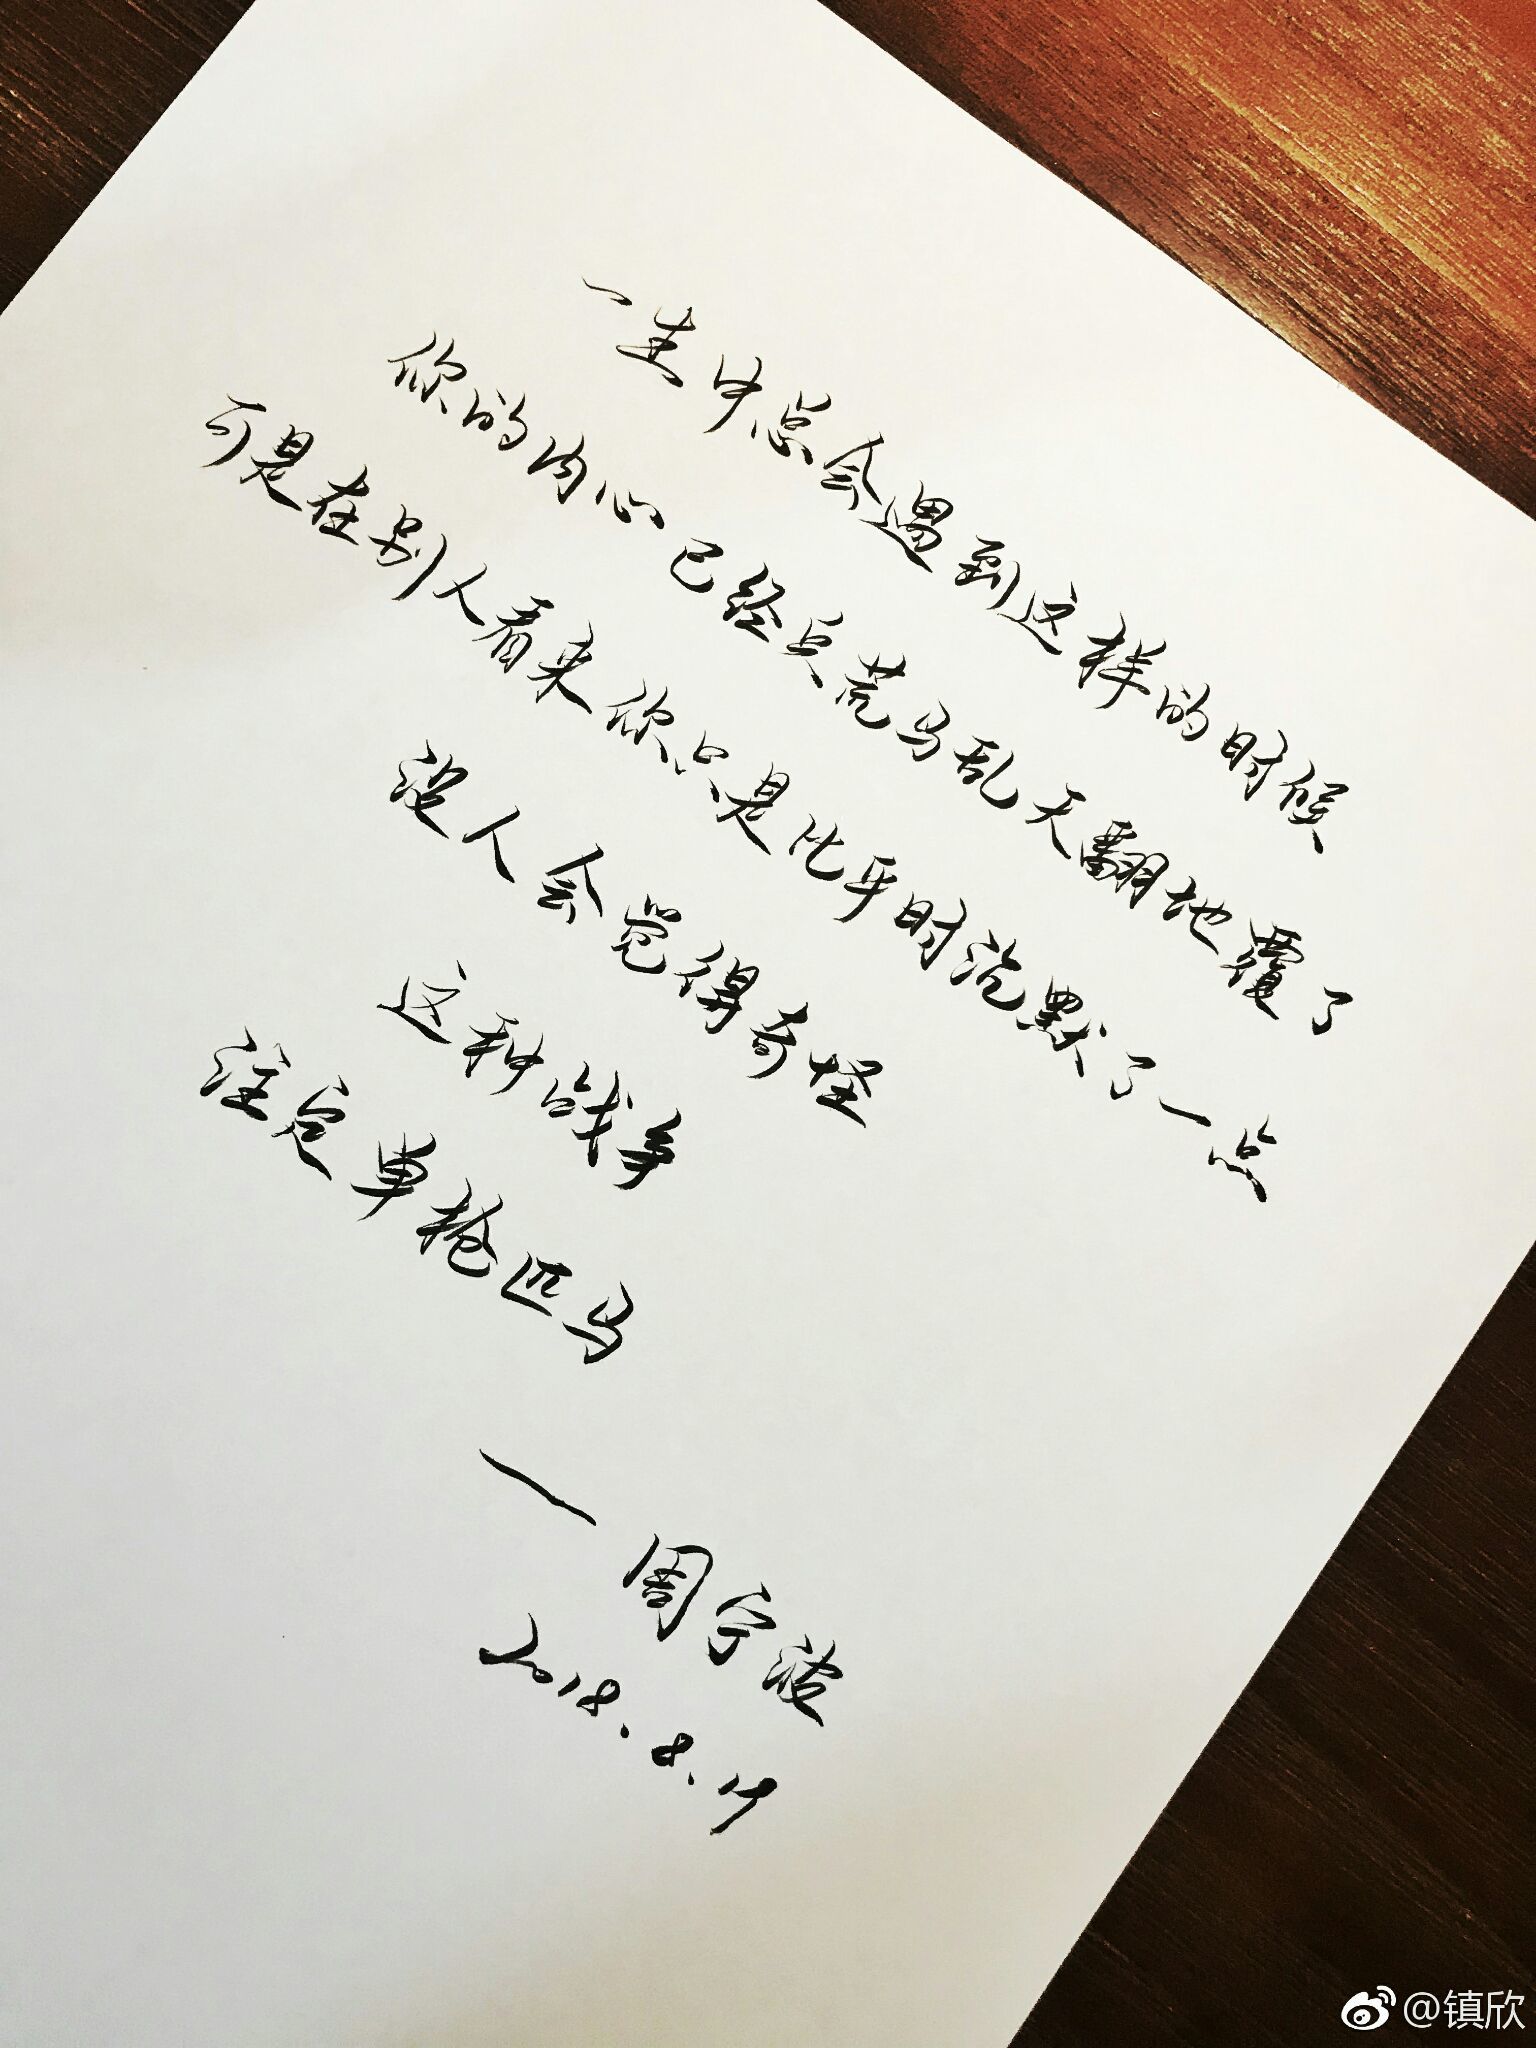 一生中总会遇到这样的时候
你的内心已经兵荒马乱天翻地覆了
可是在别人看来你只是比平时沉默了一点
没人会觉得奇怪
这种战争
注定单枪匹马
——周宁波
2018.8.19
@镇欣